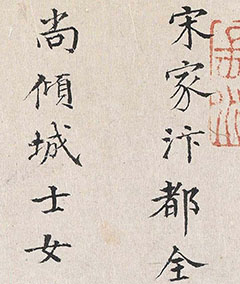 宋家汴都全
尚傾城士女